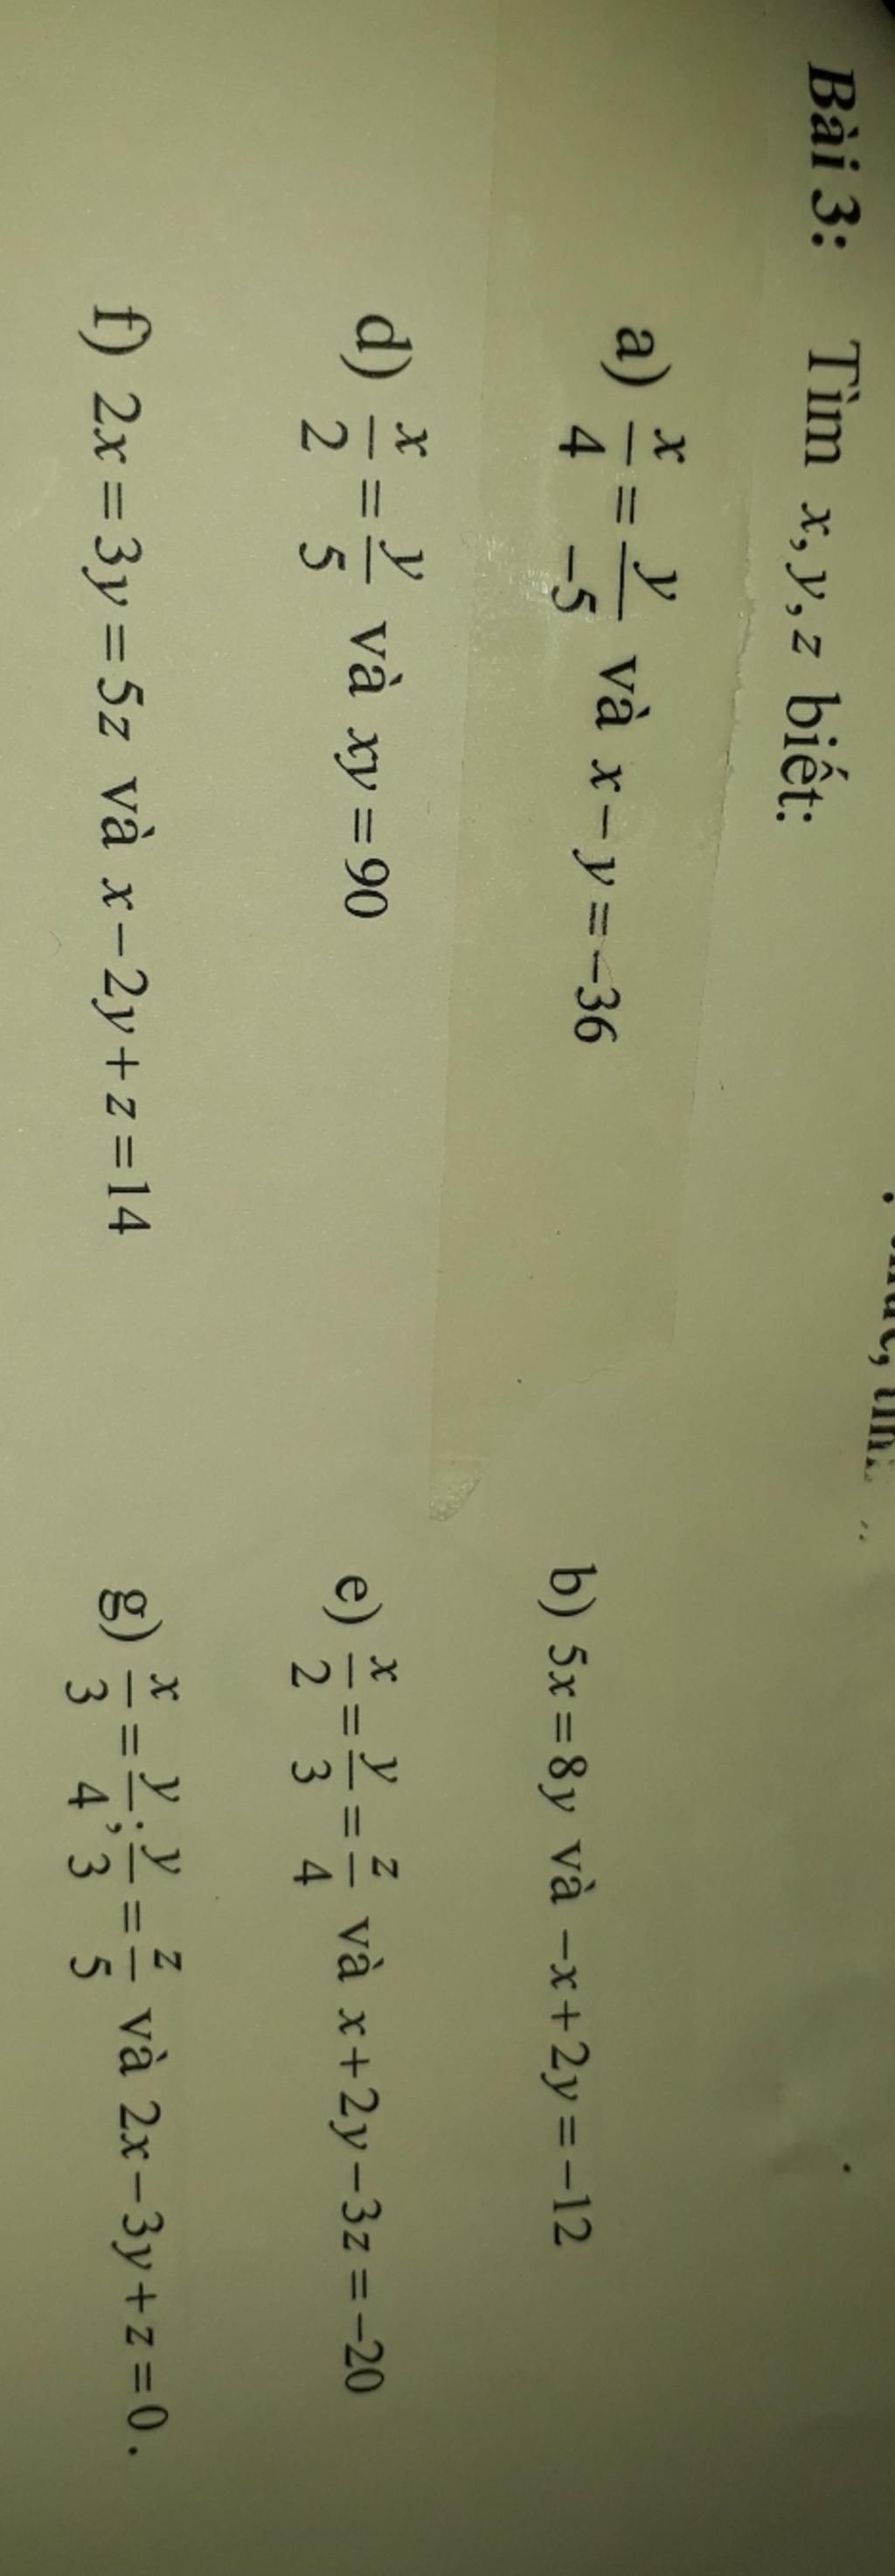 Bài 3: Tìm x, y, z biết:
a) x/4 = y/-5 và x - y = -36
b) 5x = 8y và -x + 2y = -12
d) x/2 = y/5 và xy = 90
e) x/2 = y/3 = z/4 và x + 2y - 3z = -20
f) 2x = 3y = 5z và x - 2y + z = 14
g) x/3 = y/4; y/3 = z/5 và 2x - 3y + z = 0.